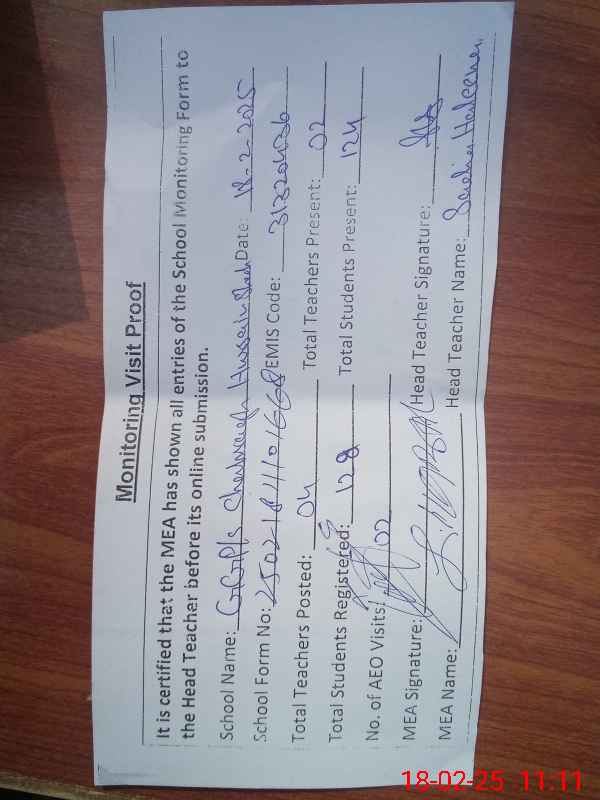 Monitoring Visit Proof
It is certified that the MEA has shown all entries of the School Monitoring Form to
the Head Teacher before its online submission.
School Name: GGPS Hussain Shah Date: 18-2-2025
School Form No: EMIS Code: 31320436
Total Teachers Posted: 04 Total Teachers Present: 02
Total Students Registered: 128 Total Students Present: 124
No. of AEO Visits: 02
MEA Signature: Head Teacher Signature:
MEA Name: Head Teacher Name: Haleema
18-02-25 11.11